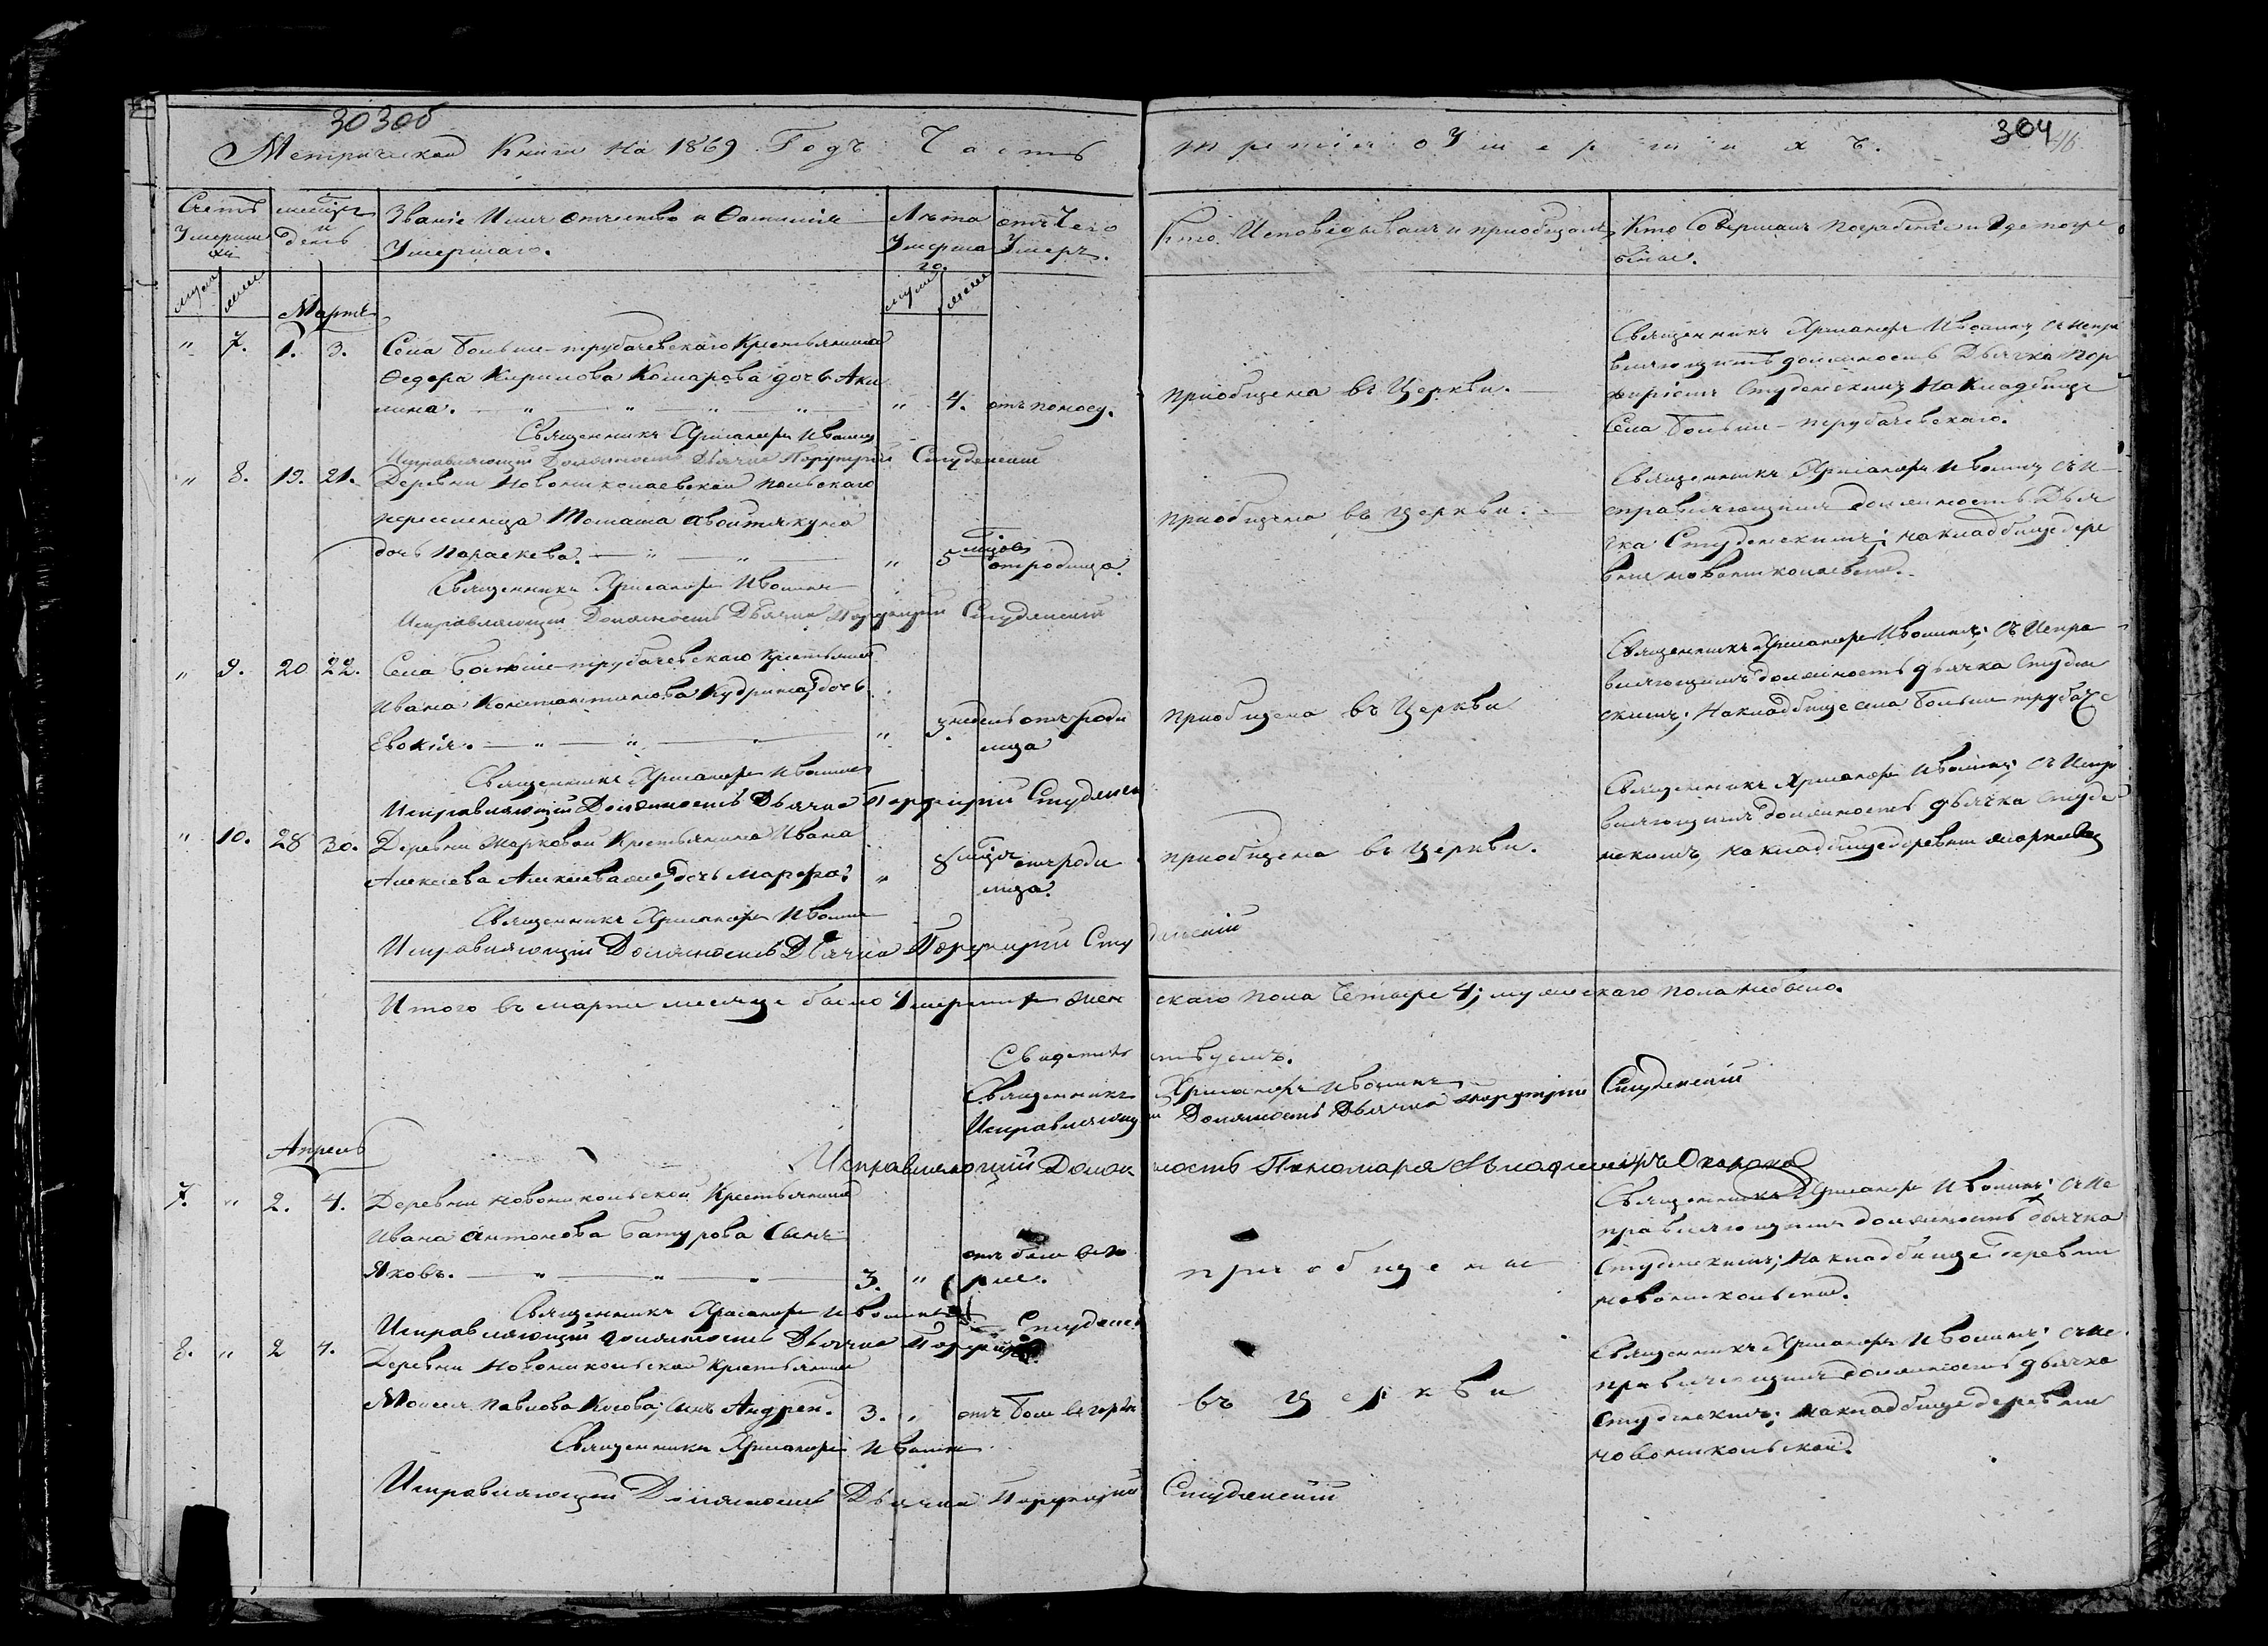 30306
304
Метрической Книги на 1869 Годъ Часть третія о Умершихъ.
Счетъ Умершихъ
муж. жен.
месяцъ и день
Званіе Имя отчество и Фамилія Умершаго.
Лѣта Умершаго.
муж. жен.
отъ Чего Умеръ.
Кто Исповѣдывалъ и приобщалъ
Кто Совершалъ погребеніе и где погребены.
Мартъ
" 7. 1. 3.
Села Больше-трубачевскаго Крестьянина
Федора Кирилова Комарова дочь Аку
лина.
" 4. отъ поносу.
приобщена въ Церкви.
Священникъ Ивашинъ съ испра
вляющимъ должность Дьячка Пор
фиріемъ Студенскимъ, на Кладбище
Села Больше-трубачевскаго.
Священникъ Ивашинъ
Исправляющій Должность Дьячка Порфирій Студенскій
" 8. 19. 21.
Деревни Новониколаевской польскаго
переселенца Томаша
дочь Параскева.
" 5 месяцовъ отъ родимца.
приобщена въ церкви.
Священникъ Ивашинъ съ и
справляющимъ должность Дья
чка Студенскимъ; на кладбище дере
вни новониколаевской.
Священникъ Ивашинъ
Исправляющій Должность Дьячка Порфирій Студенскій
" 9. 20 22.
Села Больше-трубачевскаго Крестьянина
Ивана Константинова Кудрина, дочь
Евокія.
" 3 недель отъ роди
мца
приобщена въ Церкви
Священникъ Ивашинъ; съ Испра
вляющимъ должность дьячка Студен
скимъ; На кладбище села Больше трубаче
Священникъ Ивашинъ
Исправляющій Должность Дьячка Порфирій Студенск
" 10. 28 30.
Деревни Марковой Крестьянина Ивана
Алексеева дочь Марфа.
" 8 месяц отъ роди
мца.
приобщена въ Церкви.
Священникъ Ивашинъ; съ Испра
вляющимъ должность дьячка Студе
нскимъ, на кладбище деревни марковой
Священникъ Ивашинъ
Исправляющій Должность Дьячка Порфирій Студенскій
Итого въ марте месяце было Умершихъ женскаго пола Четыре 4; мужескаго пола небыло.
Свидетельствуемъ.
Священникъ Ивашинъ
Исправляющій Должность Дьячка Порфирій Студенскій
Исправляющій Должность Пономаря Владимиръ Окороко
Апрель
7. " 2. 4.
Деревни новоникольской Крестьянина
Ивана Антонова Батурова Сынъ
Яковъ.
3. "
приобщены
Священникъ Ивашинъ; съ Ис
правляющимъ должность дьячка
Студенскимъ; На кладбище деревни
новоникольской.
Священникъ Ивашинъ
Исправляющій должность Дьячка Порфирій Студенск
8. " 2 4.
Деревни Новоникольской Крестьянина
Моисея Павлова Косова; сынъ Андрей.
3. "
въ церкви
Священникъ Ивашинъ; съ Ис
правляющимъ должность дьячка
Студенскимъ; на кладбище деревни
новоникольской.
Священникъ Ивашинъ
Исправляющій Должность Дьячка Порфирій Студенскій